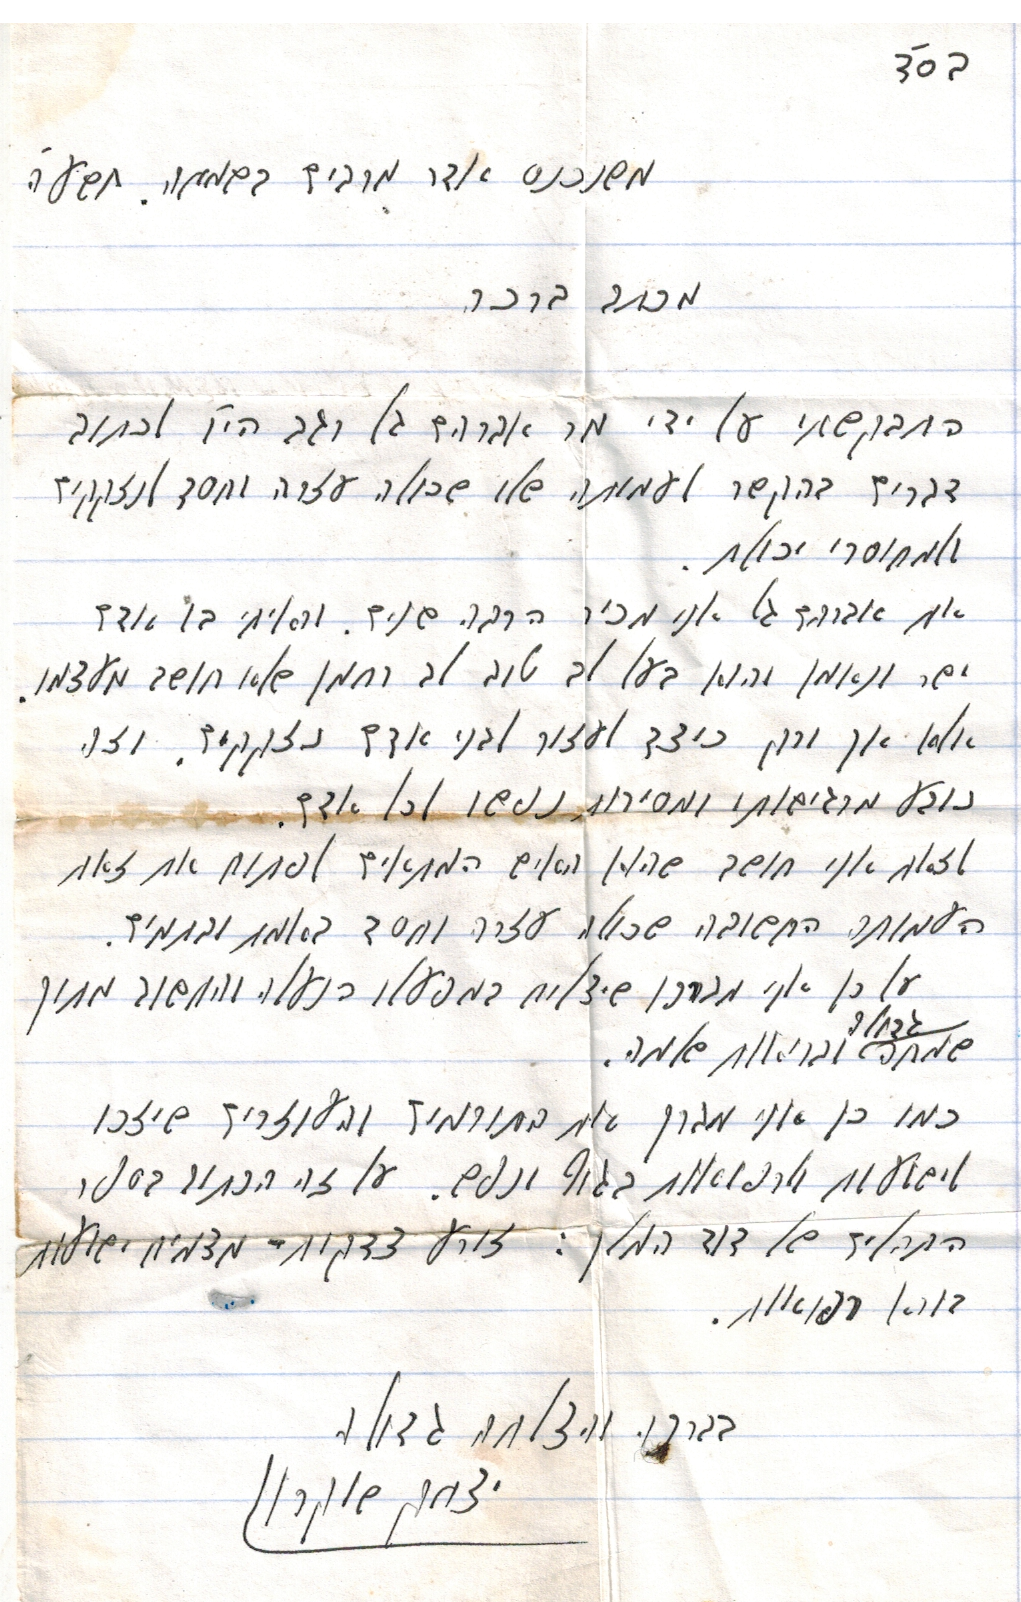 בס"ד
משנכנס אדר מרבים בשמחה. תשע"ה
מכתב ברכה
התבקשתי על ידי מר אברהם גל רגב הי"ו לכתוב
דברים בהקשר לעמותה שלו שכולה עזרה וחסד לנזקקים
ולמחוסרי יכולת.
את אברהם גל אני מכיר הרבה שנים. וראיתי בו אדם
ישר ונאמן והוא בעל לב טוב לב רחמן שלא חושב מעצמו.
אלא אך ורק כיצד לעזור לבני אדם נזקקים. וזה
נובע מרגישותו ומסירות נפשו לכל אדם.
לזאת אני חושב שהוא האיש המתאים לפתוח את זאת
העמותה החשובה שכולה עזרה וחסד באמת ובתמים.
על כן אני מברכו שיצליח במפעלו הנעלה והחשוב מתוך
שמחה גדולה ובריאות שלמה.
כמו כן אני מברך את התורמים והעוזרים שיזכו
לישועות ורפואות בגוף ונפש. על זה הכתוב בספר
התהלים של דוד המלך: זורע צדקות - מצמיח ישועות
בורא רפואות.
בברכה והצלחה גדולה
יצחק שוקרון